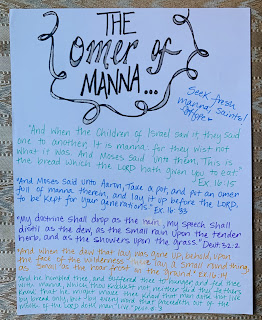 THE
omer of
MANNA...
Seek fresh
manna, saints!
"And when the Children of Israel saw it, they said
one to another, It is manna: for they wist not
what it was. And Moses said unto them, This is
the bread which the LORD hath given you to eat."
Ex. 16:15
"And Moses said unto Aaron, Take a pot, and put an omer
full of manna therein, and lay it up before the LORD,
to be kept for your generations." Ex. 16:33
"My doctrine shall drop as the rain, my speech shall
distil as the dew, as the small rain upon the tender
herb, and as the showers upon the grass." Deut 32:2
"And when the dew that lay was gone up, behold, upon
the face of the wilderness there lay a small round thing,
as small as the hoar frost on the ground." Ex. 16:14
"And he humbled thee, and suffered thee to hunger, and fed thee
with manna, which thou knewest not, neither did thy fathers
know; that he might make thee know that man doth not live
by bread only, but by every word that proceedeth out of the
mouth of the LORD doth man live." Deut 8:3